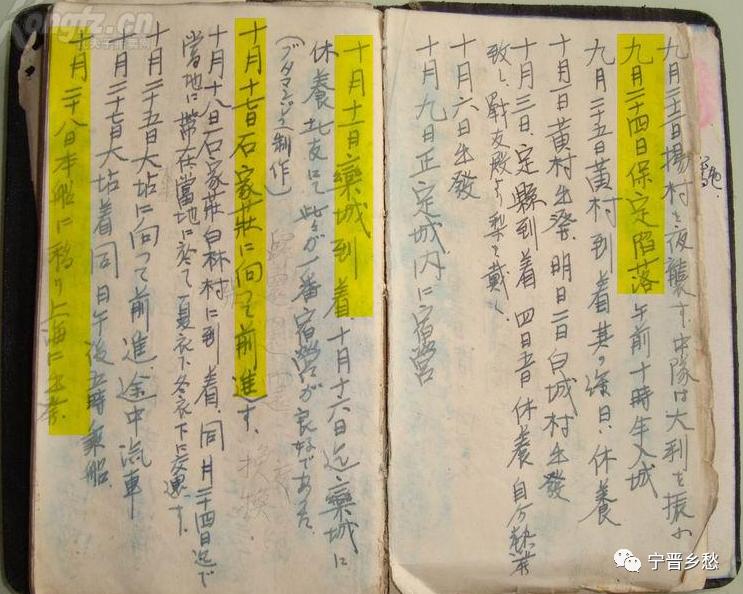 九月二十二日楊村を夜襲す、中隊は大刹を振
九月二十四日保定陷落午前十時半入城
九月二十五日黄村到着其の後日、休養
十月一日黄村出発、明日二日白城村出發
十月三日、定縣到着 四日五日休養 自分
致し、戰友殿より梨を戴く、
十月六日出發
十月九日正定城内に宿營
十月十一日欒城到着、十月十六日迄欒城に
休養 此が一番宿營が良好であった
制作)
十月十七日石家莊に向って前進す、
十月十八日石家莊白林村に到着、同月二十四日迄で
當地に滞在當地に於て夏衣下冬衣下に交換す、
十月二十五日大沽に向って前進途中汽車
十月二十七日大沽着同日午後五時乗船
十月二十八日本船に移り上海に
宁晋乡愁